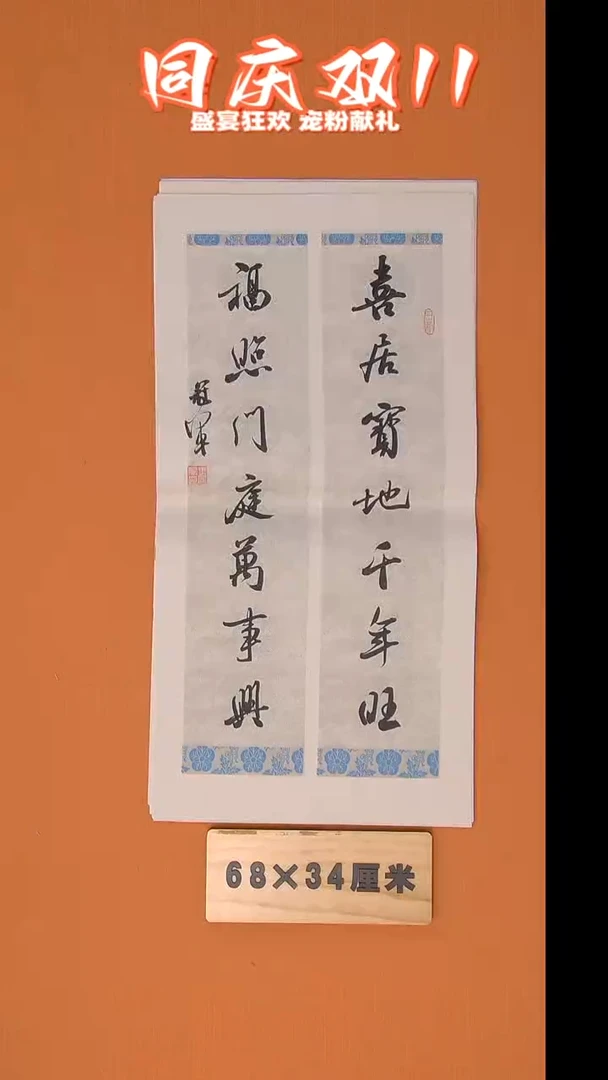 同庆双11
盛宴狂欢 宠粉献礼
喜居寶地千年旺
福照门庭萬事興
冠军
68×34厘米